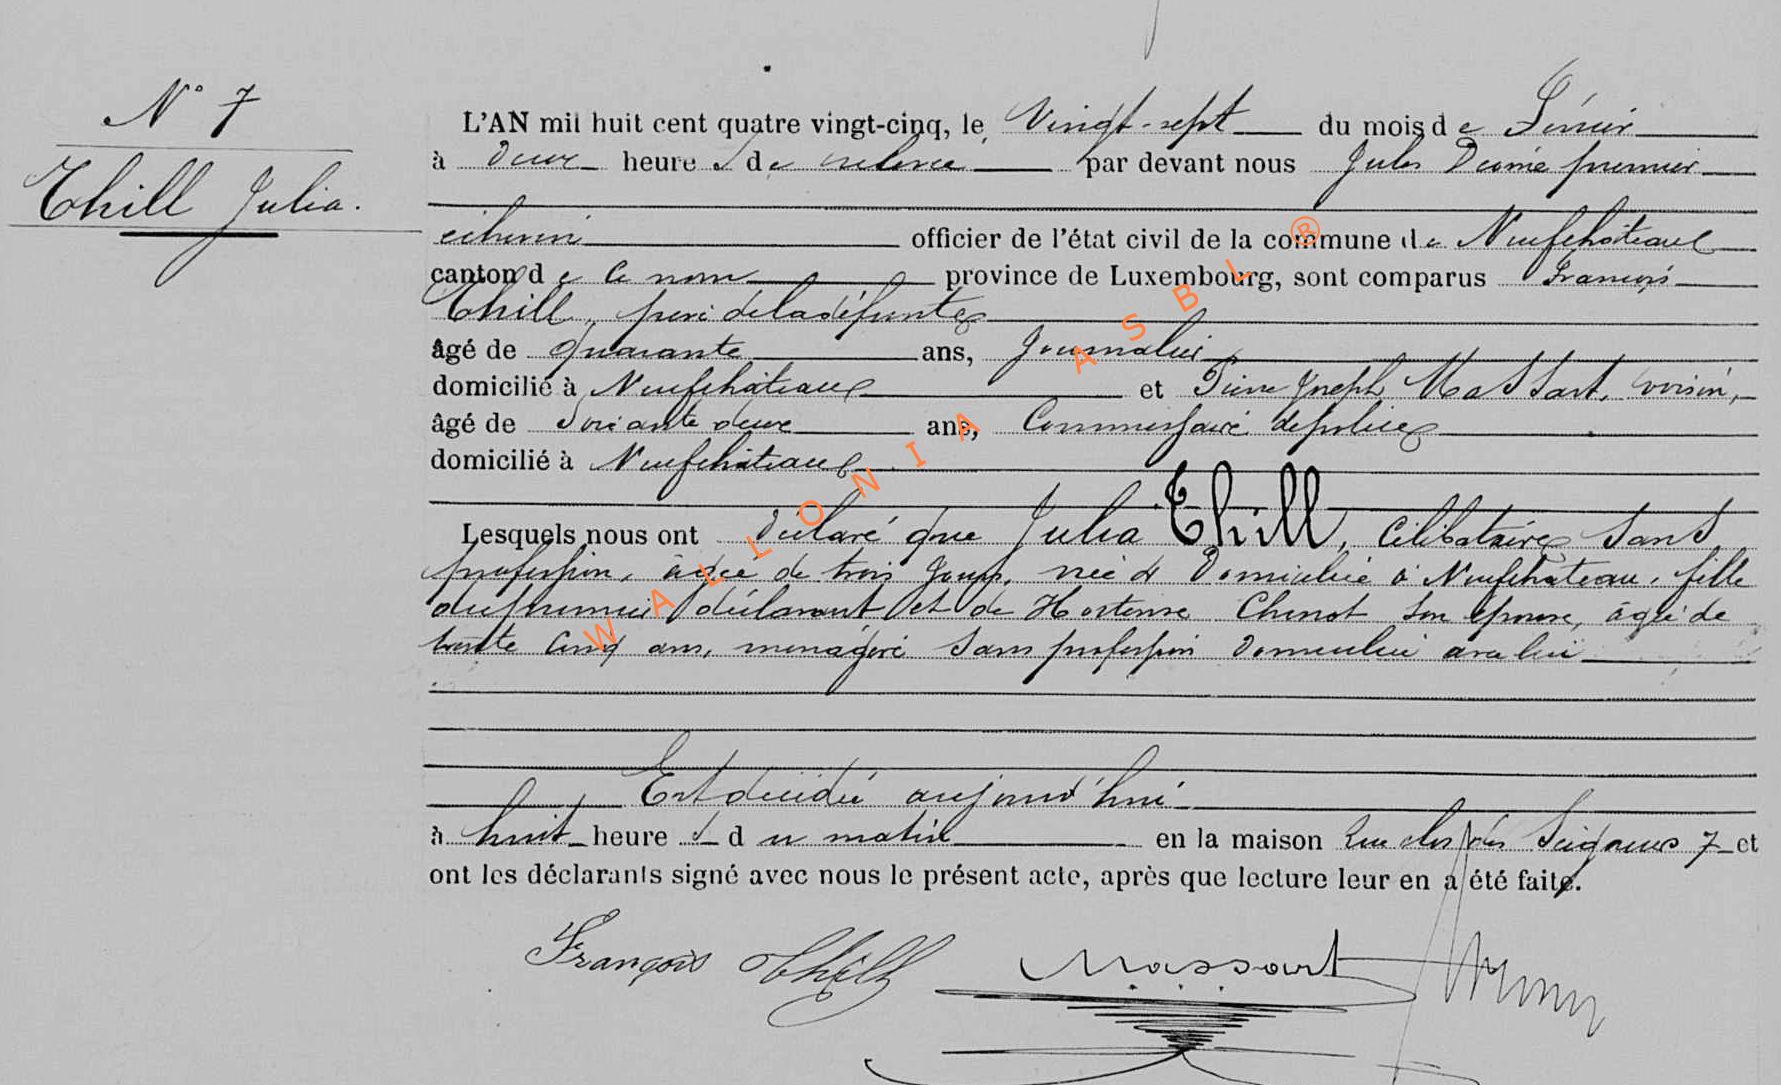 N° 7
Thill Julia.
L'AN mil huit cent quatre vingt-cinq, le Vingt-sept du mois de Février
à deux heures de relevée par devant nous Jules premier
échevin officier de l'état civil de la commune de Neufchâteau
canton de ce nom province de Luxembourg, sont comparus François
Thill, père de la défunte
âgé de quarante ans, Journalier
domicilié à Neufchâteau et Pierre Joseph Massart, voisin,
âgé de soixante deux ans, Commissaire de police
domicilié à Neufchâteau
Lesquels nous ont déclaré que Julia Thill, célibataire sans
profession, âgée de trois jours, née & domiciliée à Neufchâteau, fille
du premier déclarant et de Hortense Chenot son épouse, âgée de
trente cinq ans, ménagère sans profession domiciliée avec lui
Est décédée aujourd'hui
à huit heures du matin en la maison Rue clos des Seigneurs 7 et
ont les déclarants signé avec nous le présent acte, après que lecture leur en a été faite.
François Thill Massart
WALLONIA ASBL ®